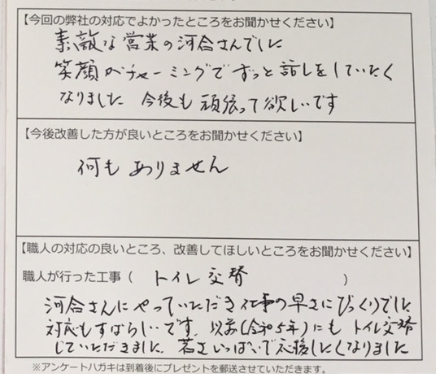 【今回の弊社の対応でよかったところをお聞かせください】
素敵な営業の河合さんでした
笑顔がチャーミングでずっと話しをしていたく
なりました 今後も頑張って欲しいです
【今後改善した方が良いところをお聞かせください】
何もありません
【職人の対応の良いところ、改善してほしいところをお聞かせください】
職人が行った工事（ トイレ交替 ）
河合さんにやっていただき仕事の早さにびっくりでした
対応もすばらしいです。以前(令和5年)にもトイレ交替
していただきました 若さいっぱいで応援したくなりました
※アンケートハガキは到着後にプレゼントを郵送させていただきます。